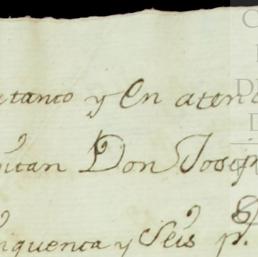 etanto y En atenc
pitan Don Joseph
nquenta y Seis p.